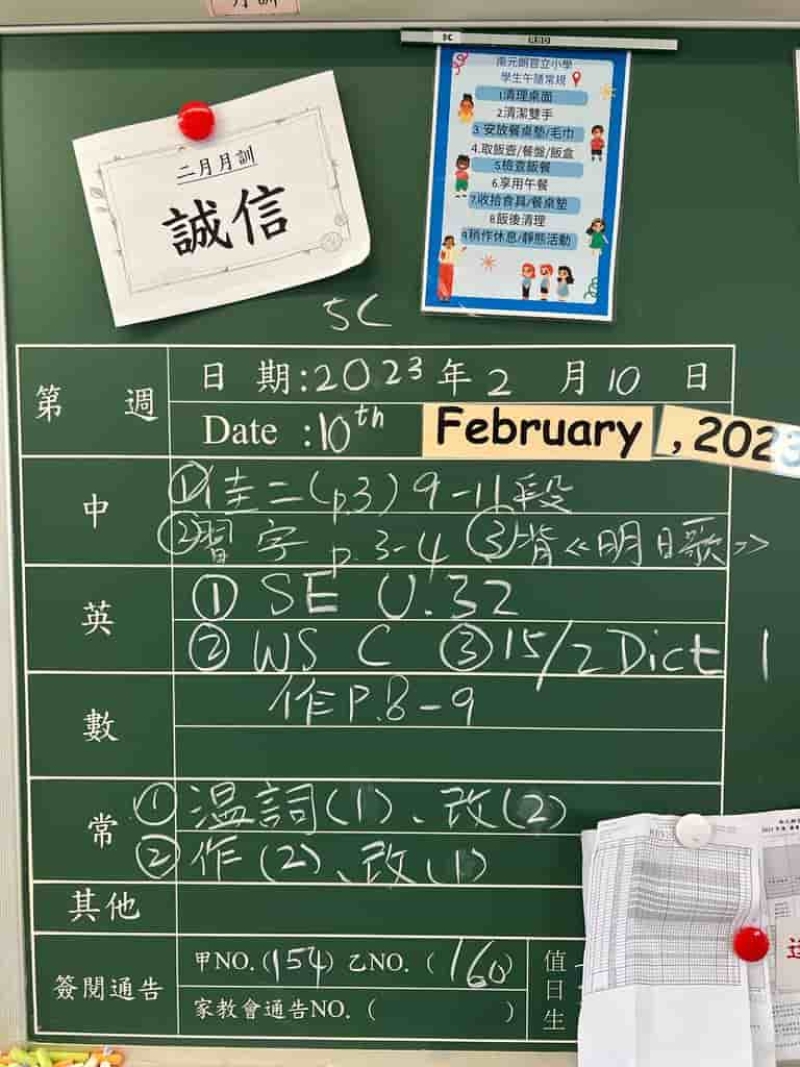 月訓
二月月訓
誠信
5C
南元朗官立小學
學生午膳常規
1清理桌面
2.清潔雙手
3.安放餐桌墊/毛巾
4.取飯壺/餐盤/飯盒
5檢查飯餐
6.享用午餐
7.收拾食具/餐桌墊
8飯後清理
9稍作休息/靜態活動
5C
第 週
日 期:2023年2 月10 日
Date :10th February , 2023
中
①佳二(p.3) 9-11段
②習字 p.3-4 ③背《明日歌》
英
① SE U.32
② WS C ③15/2 Dict 1
數
作P.8-9
常
①溫詞(1)、改(2)
②作(2)、改(1)
其他
簽閱通告
甲NO.(154) 乙NO.(160)
家教會通告NO.( )
值日生